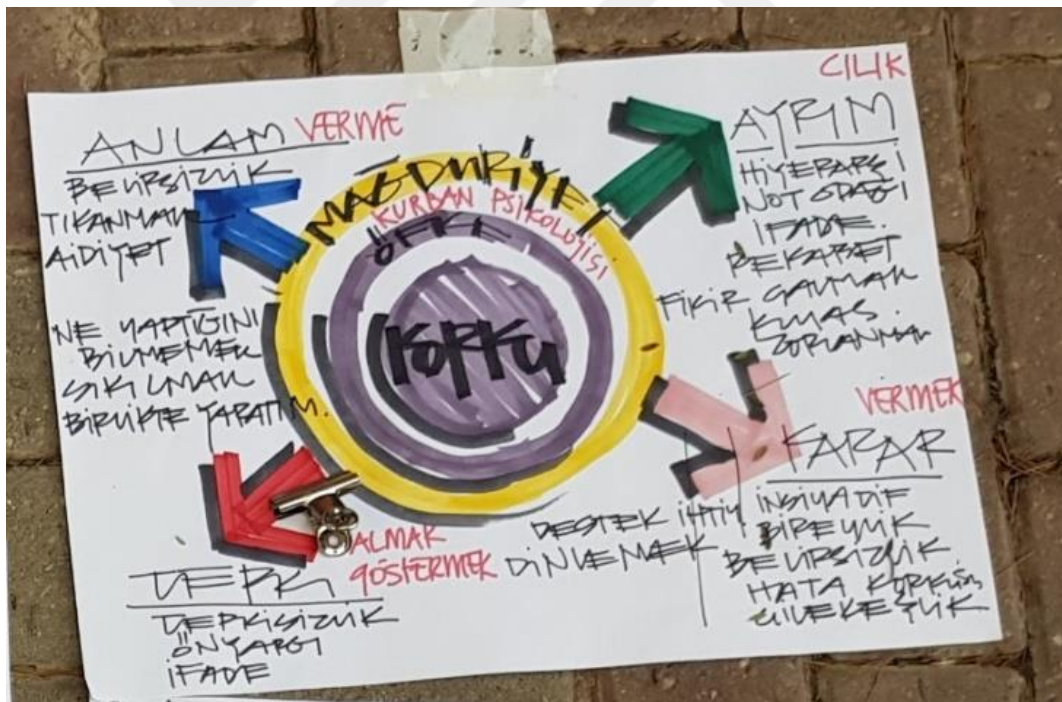 ANLAM VERME
BELİRSİZLİK
TIKANMAK
AİDİYET
NE YAPTIĞINI
BİLMEMEK
SIKILMAK
BİRLİKTE YARATIM.
MAĞDURİYET
KURBAN PSİKOLOJİSİ
ÖFKE
KORKU
CILIK
AYRIM
HİYERARŞİ
NOT ODAĞI
İFADE.
REKABET
FİKİR ÇALMAK
KIYAS.
ZORLANMAK
VERMEK
KARAR
İNSİYADİF
BİREYLİK
BELİRSİZLİK
HATA KORKUSU
DESTEK İHTİY.
DİNLEMEK
ALMAK
GÖSTERMEK
TEPKİ
TEPKİSİZLİK
ÖNYARGI
İFADE